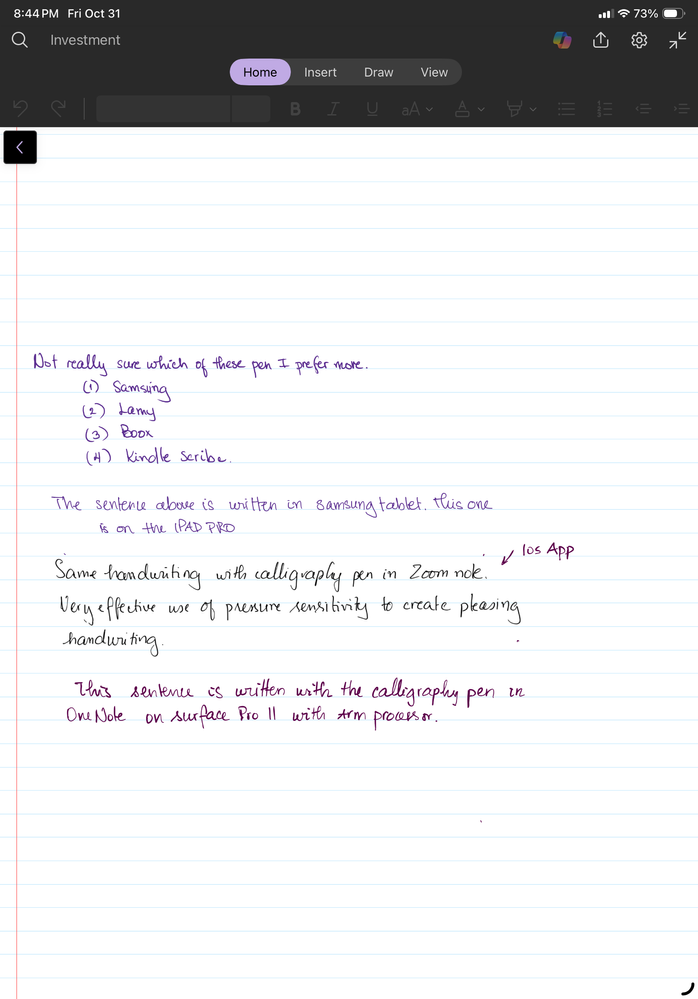 8:44 PM Fri Oct 31 73%
Investment
Home Insert Draw View
B I U aA A
Not really sure which of these pen I prefer more.
(1) Samsung
(2) Lamy
(3) Boox
(4) Kindle Scribe.
The sentence above is written in Samsung tablet. This one
is on the iPAD PRO
Ios App
Same handwriting with calligraphy pen in Zoom note.
Very effective use of pressure sensitivity to create pleasing
handwriting.
This sentence is written with the calligraphy pen in
OneNote on surface Pro 11 with Arm processor.